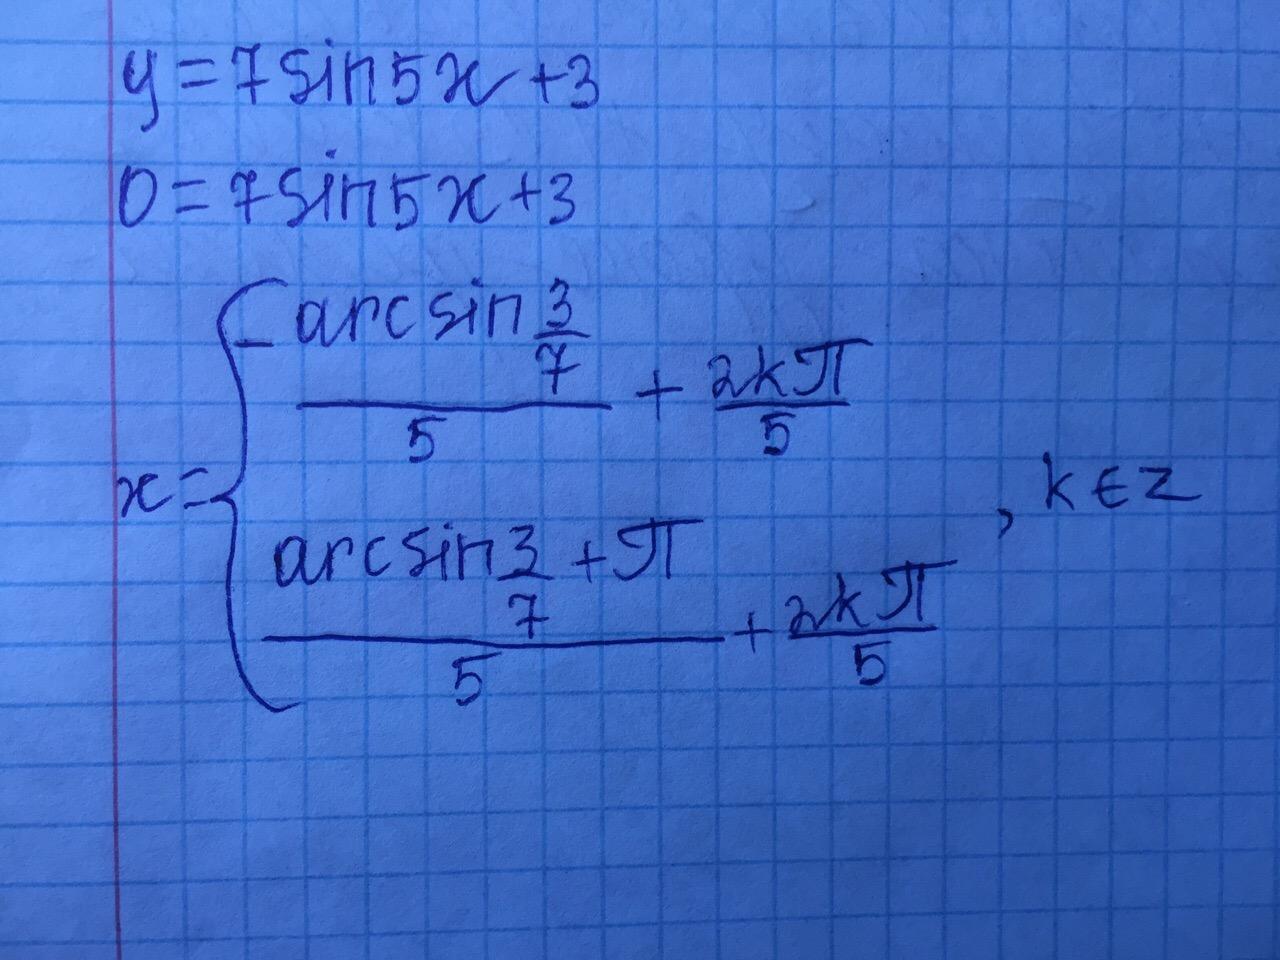 y = 7sin5x + 3
0 = 7sin5x + 3
x = { -arcsin 3/7 / 5 + 2kπ/5
arcsin 3/7 + π / 5 + 2kπ/5 , k ∈ z